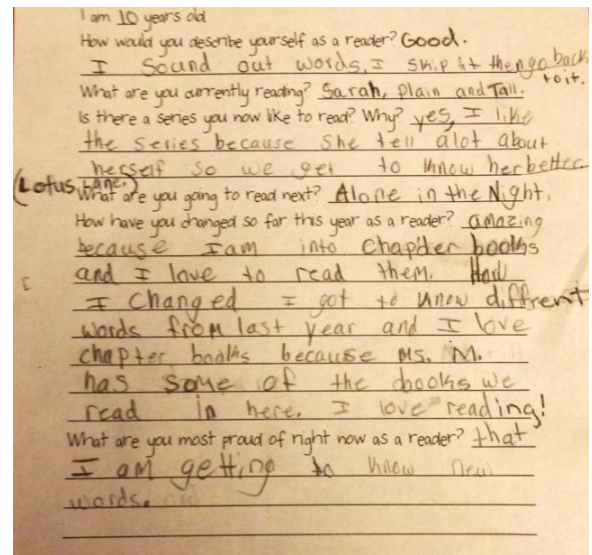 I am 10 years old
How would you describe yourself as a reader? Good.
I Sound out words, I skip it then go back to it.
What are you currently reading? Sarah, Plain and Tall.
Is there a series you now like to read? Why? yes, I like
the series because she tell alot about
herself so we get to know her better
(Lotus Lane.)
What are you going to read next? Alone in the Night.
How have you changed so far this year as a reader? amazing
because I am into chapter books
and I love to read them. How
I Changed I got to know diffrent
words from last year and I love
chapter books because Ms. M.
has some of the books we
read in here. I love reading!
What are you most proud of right now as a reader? that
I am getting to know new
words.